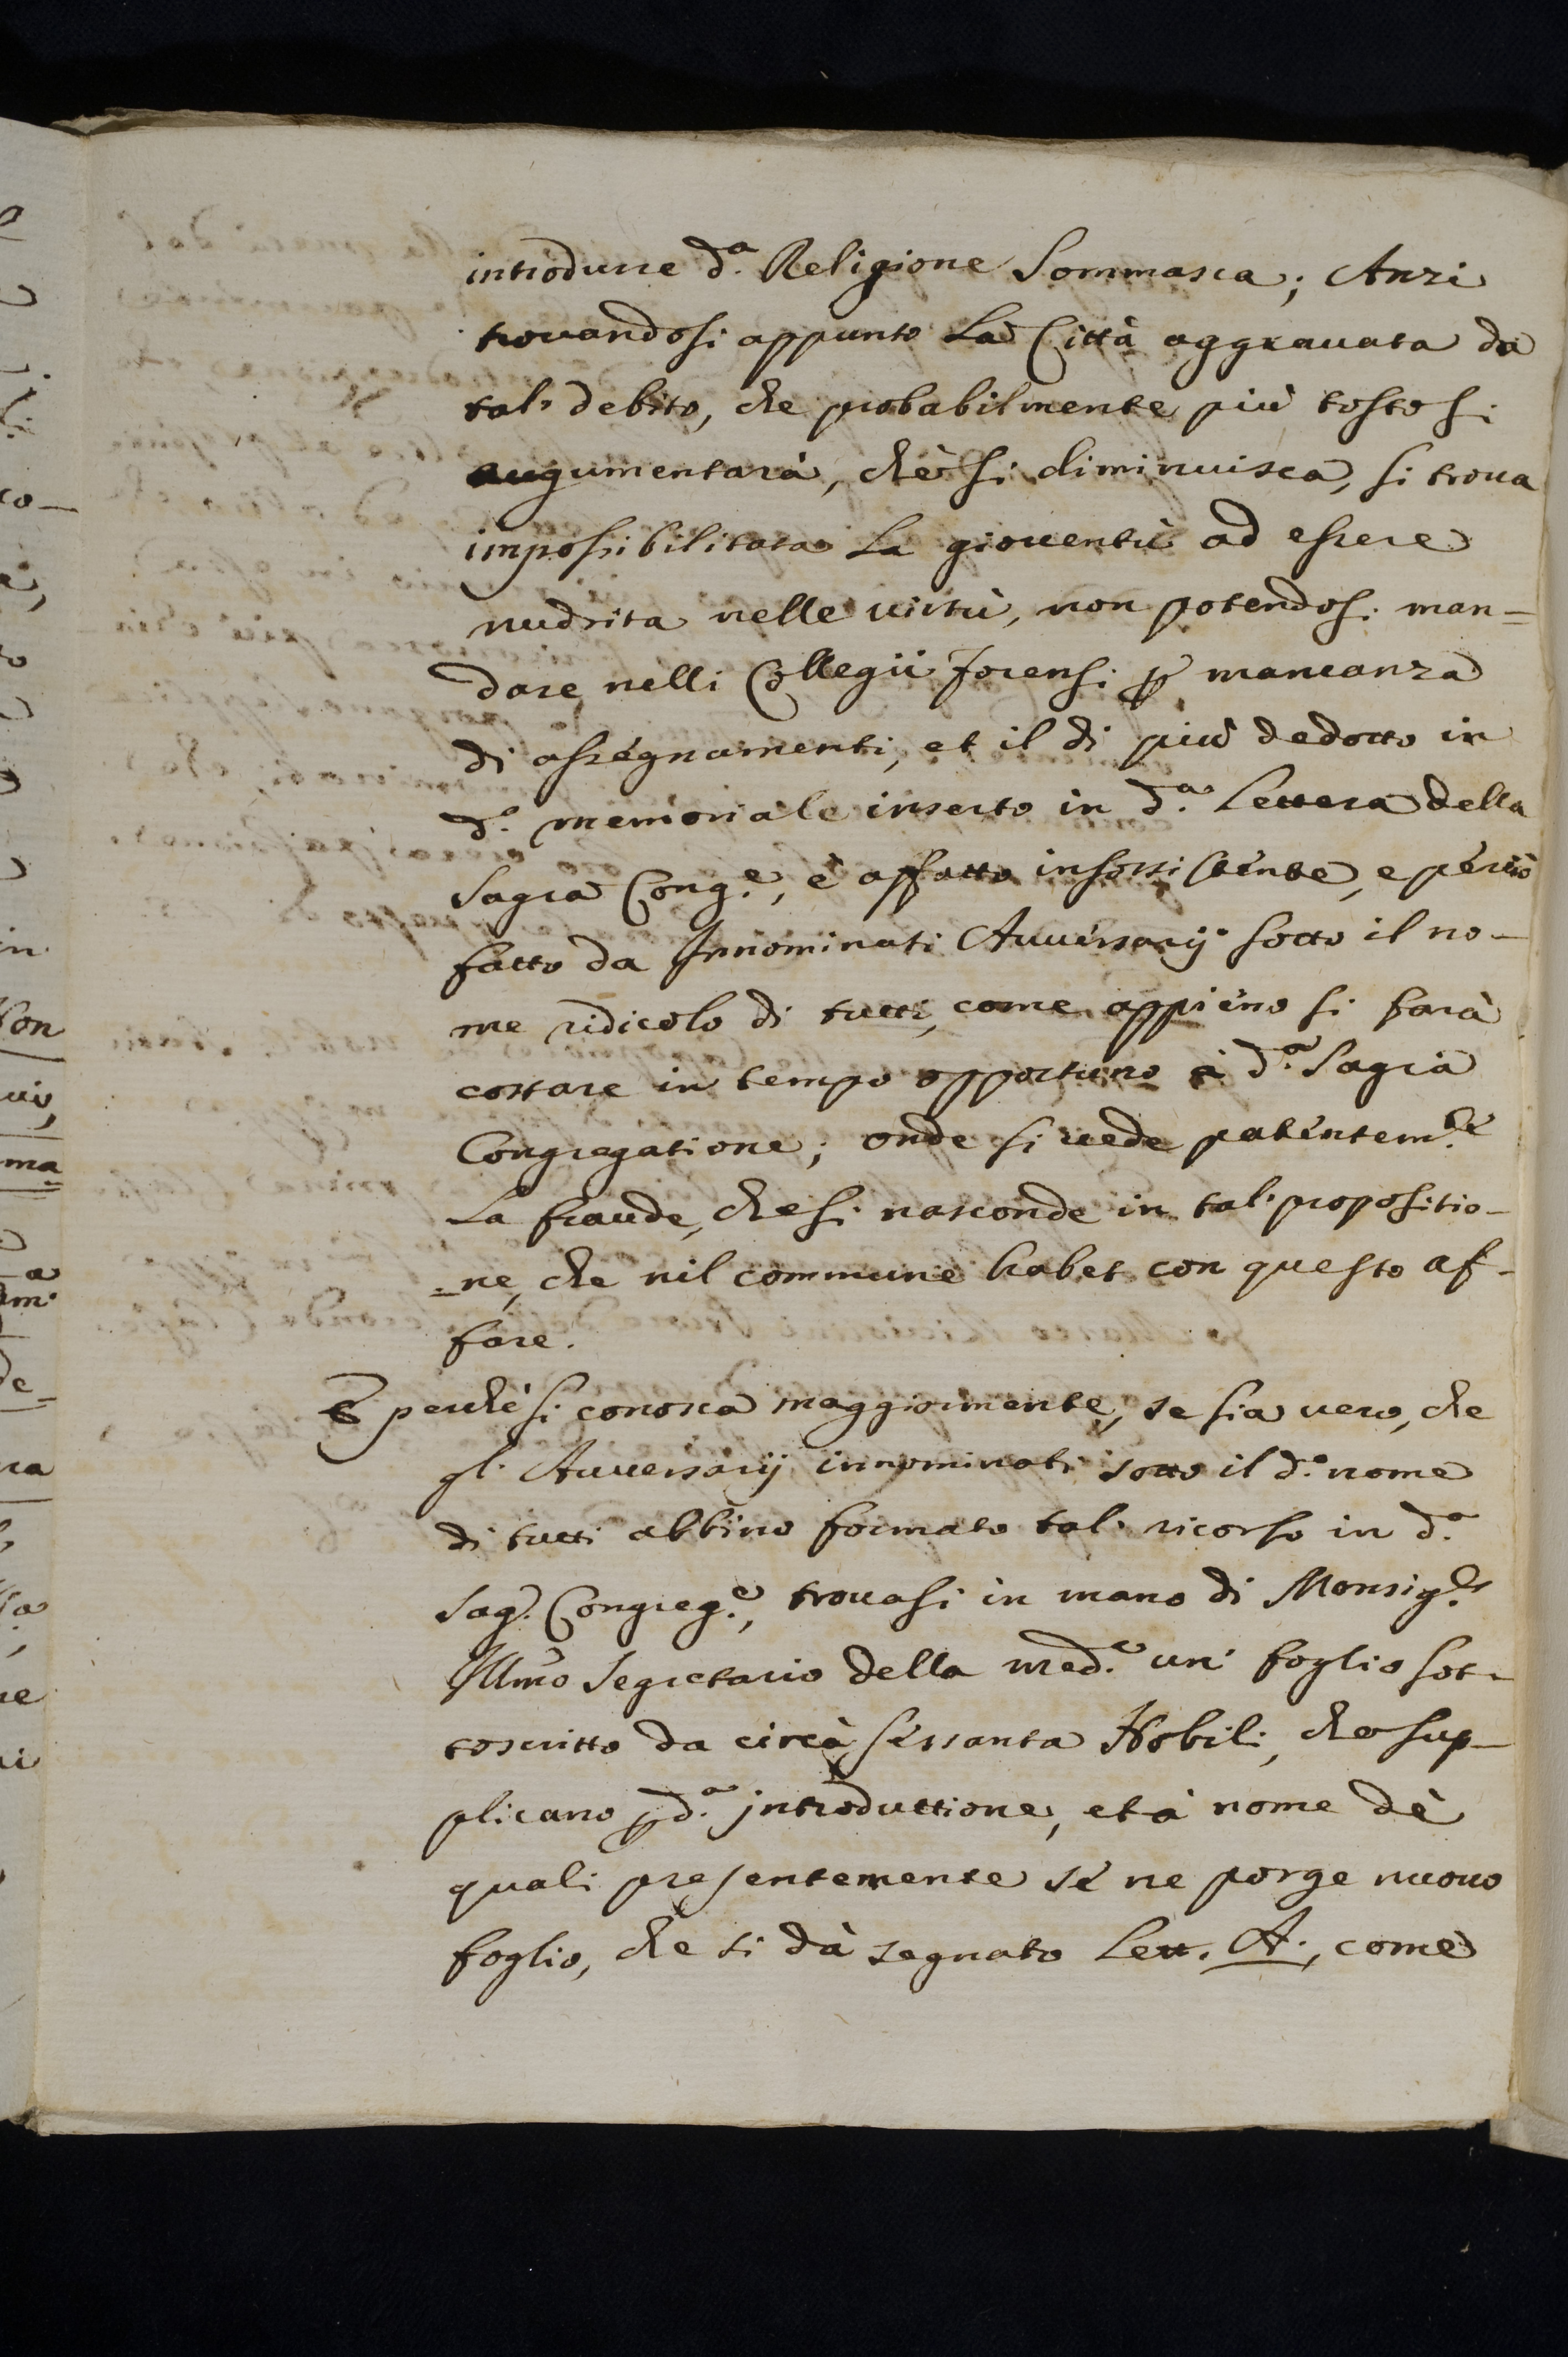 introdurre d.ª Religione Sommasca; Anzi
trouandosi appunto La Città aggrauata da
tal' debito, che probabilmente più tosto si
augumentarà, chè si diminuisca, si troua
impossibilitata La giouentù ad essere
nudrita nelle uirtù, non potendosi man=
dare nelli Collegii forensi p mancanza
di assegnamenti, et il di più dedotto in
d.º memoriale inserto in d.ª Lettera della
Sagra Cong.e, è affatto insossistente, e perciò
fatto da Innominati Auuersarij sotto il no-
me ridicolo di tutti, come appieno si farà
costare in tempo opportuno à d.ª Sagra
Congregatione; onde si uede patentem.te
La fraude, che si nasconde in tal' propositio-
=ne, che nil commune habet con questo af-
fare.
E perchè si conosca maggiormente, se sia uero, che
gl' Auuersarij innominati sotto il d.º nome
di tutti abbino formato tal' ricorso in d.ª
Sag. Congreg.e, trouasi in mano di Monsig.r
Illmo Segretario della med.ª un' foglio sot-
toscritto da circà sessanta Nobili, che sup-
plicano p d.ª introduttione, et à nome dè
quali presentemente sé ne porge nuouo
foglio, che si dà segnato Lett. A., come